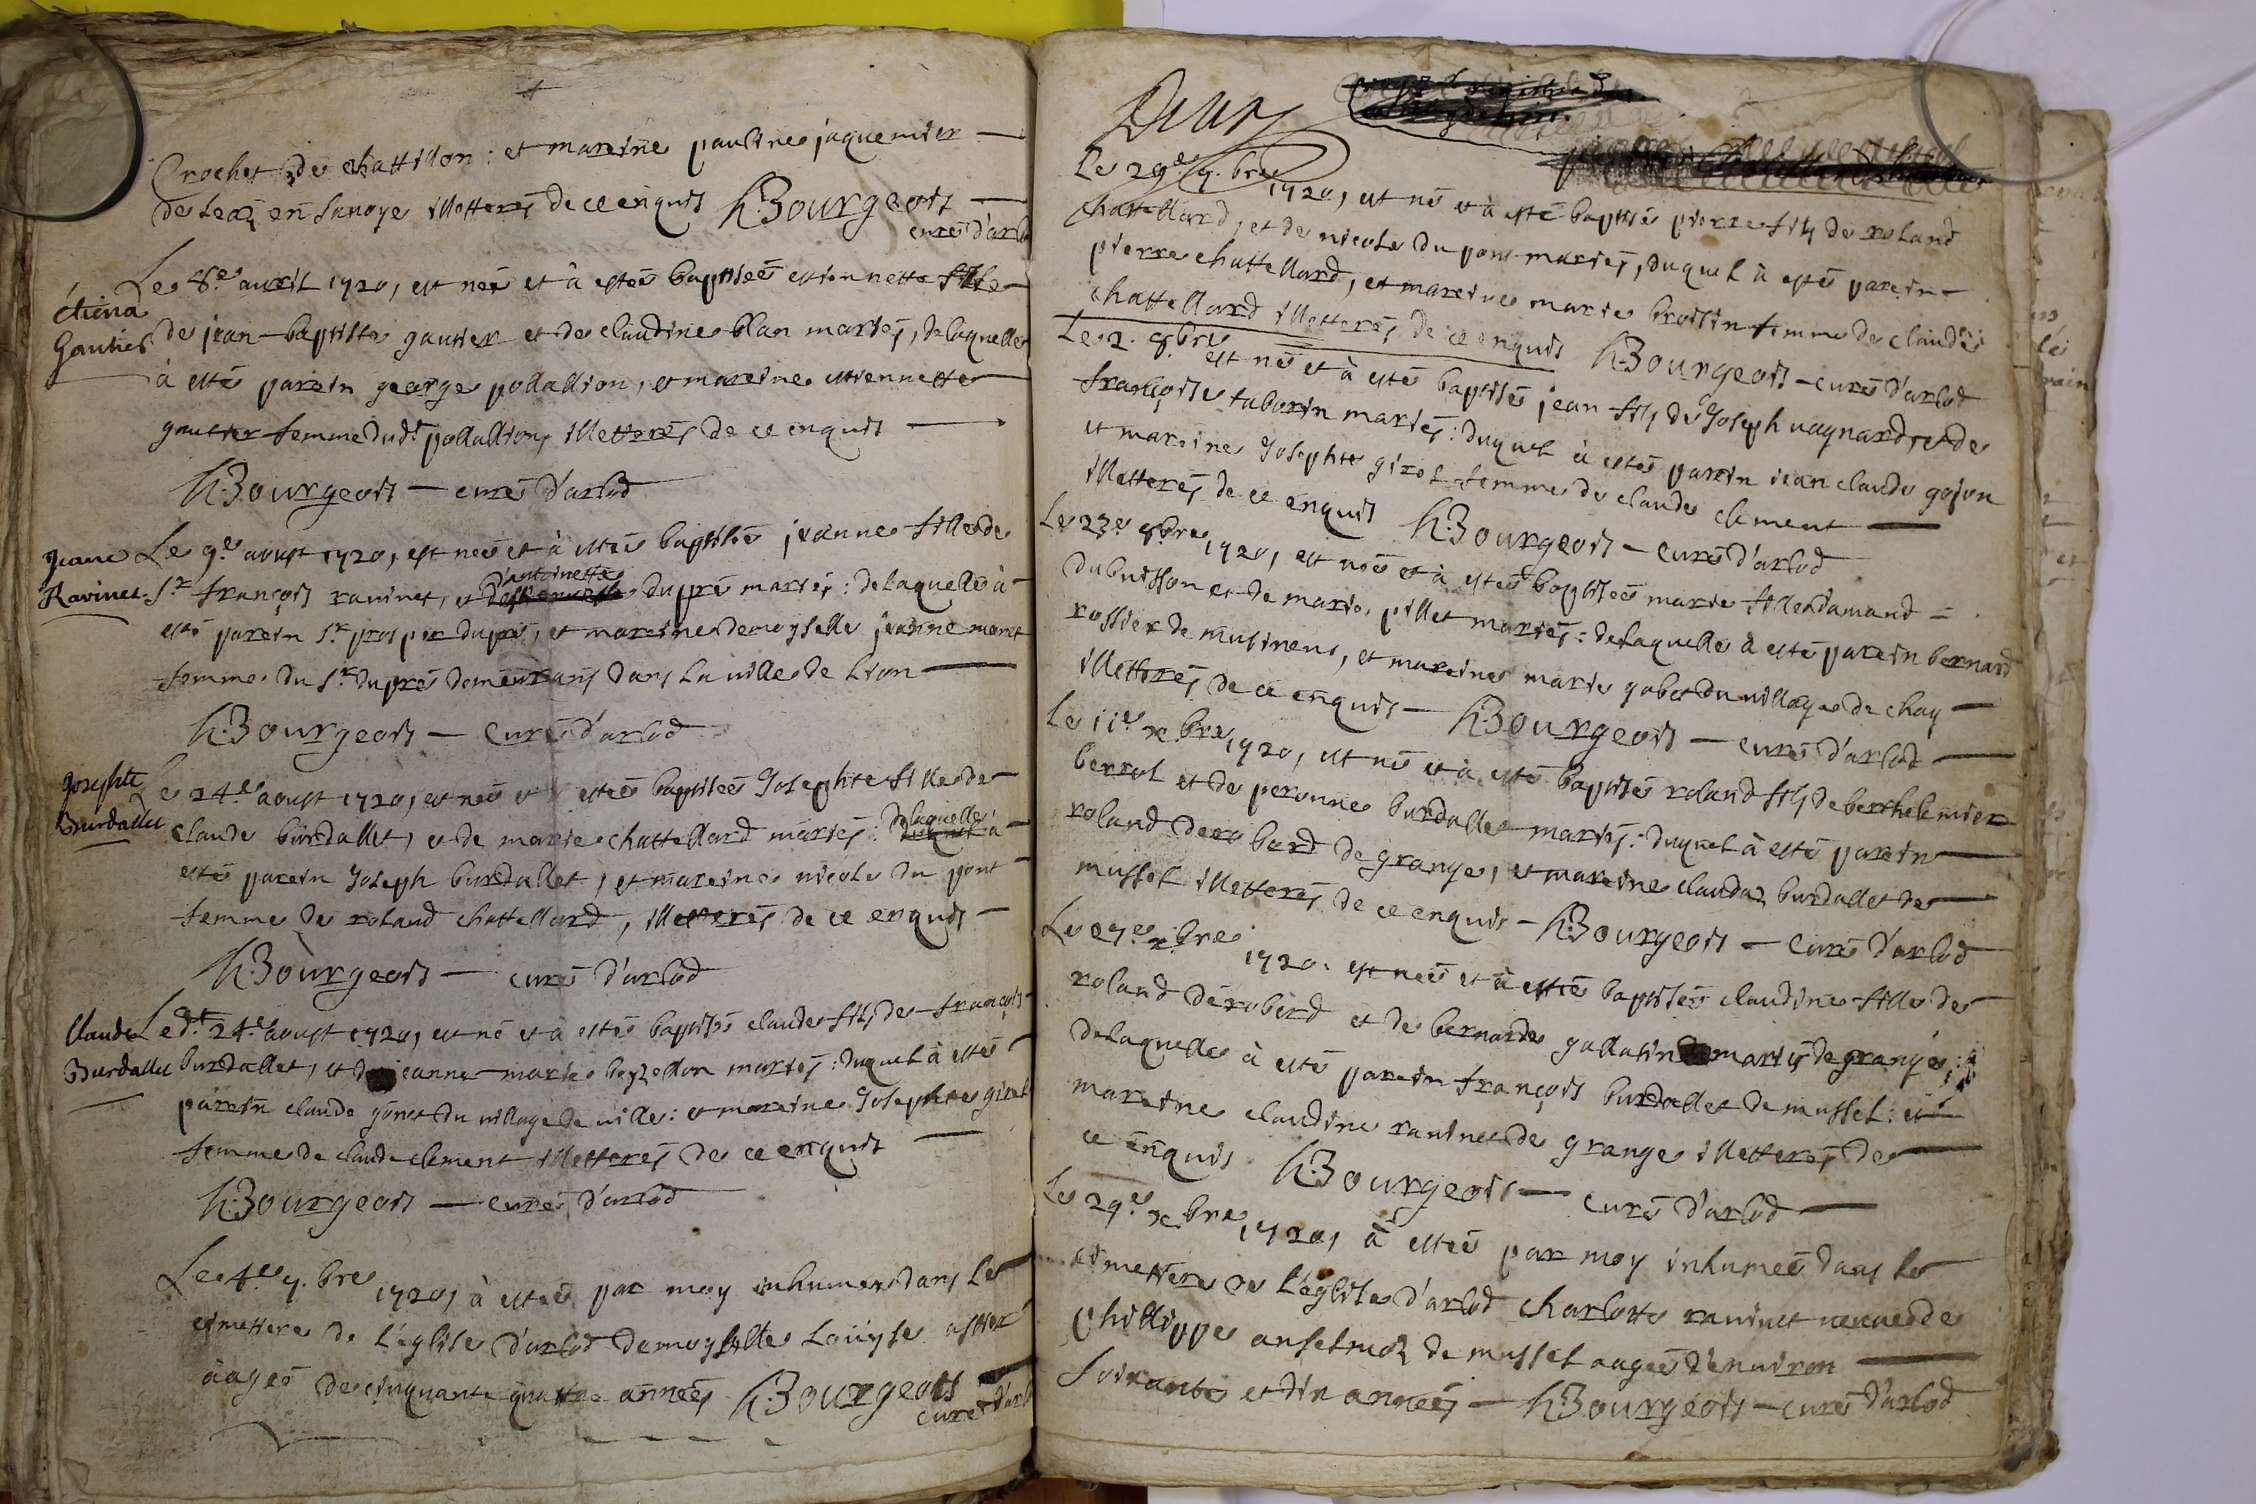 Crochet de chattillon : et mareine pauline jaquemier
de Seaz en Savoye illetteres de ce enquis h: Bourgeois
curé d'arlod
Le 8e avril 1720, est neé et à estée baptiseé estiennette fille
étiena
Gautier
de jean-baptiste gautier et de claudine blan mariés, de laquelle
à esté parein george pollallion, et mareine estiennette
gautier femme dudt pollallion, illetterés de ce enquis
h: Bourgeois — curé d'arlod
jeane
Ravinet
Le 9e aoust 1720, est neé et à estée baptisée jeanne fille de
d'antoinette
Sr françois ravinet, et dupré mariés : de laquelle à
esté parein Sr prosper dupré, et mareine demoyselle jeanne
femme du Sr dupré demeurans dans la ville de Lion
h: Bourgeois — curé d'arlod
josephte
Burdallet
Le 24e aoust 1720, est neé et à estée baptiseé Josephte fille de
claude burdallet, et de marie chattellard mariés : de laquelle à
esté parein Joseph burdallet, et mareine nicole du pont
femme de roland chattellard, illetterés de ce enquis
h: Bourgeois — curé d'arlod
Claude
Burdallet
Ledt 24e aoust 1720, est né et à esté baptisé claude fils de françois
burdallet, et de jeanne-marie mariés : duquel à esté
parein claude genet du village de ville : et mareine Josephte girel
femme de claude clement illetterés de ce enquis
h: Bourgeois — curé d'arlod
Le 4e 7.bre 1720, à estée par moy inhumeé dans le
cimettere de l'église d'arlod demoyselle Louyse
àageé de cinquante quatre années h: Bourgeois
curé d'arlod
Deux
Le 29e 7.bre 1720, est né et à esté baptisé pierre fils de roland
chattellard, et de nicole du pont mariés, duquel à esté parein
pierre chattellard, et mareine marie broisin femme de claude
chattellard illetterés de ce enquis h: Bourgeois — curé d'arlod
Le 2. 8bre est né et à esté baptisé jean fils de Joseph vagnard, et de
françoise taborin mariés : duquel à esté parein jean claude gojon
et mareine Josephte girel femme de claude clement
illetterés de ce enquis h: Bourgeois — curé d'arlod
Le 23e 8bre 1720, est neé et à estée baptiseé marie fille d'amand
dubuisson et de marie pillet mariés : de laquelle à esté parein bernard
rossier de musinens, et mareine marie gobet du village de chay
illetterés de ce enquis — h: Bourgeois — curé d'arlod
Le 11e xbre 1720, est né et à esté baptisé roland fils de berthelemier
berrol et de peronne burdallet mariés : duquel à esté parein
roland derobard de grange, et mareine claudaz burdallet de
mussel illetterés de ce enquis — h: Bourgeois — curé d'arlod
Le 27e xbre 1720. est neé et à estée baptiseé claudine fille de
roland derobard et de bernarde gallatin mariés de grange :
de laquelle à esté parein françois burdallet de mussel : et
mareine claudine ravinet de grange illetterés de
ce enquis h: Bourgeois — curé d'arlod
Le 29e xbre 1720, à estée par moy inhumeé dans le
cimettere de l'église d'arlod charlotte ravinet veuve de
phillippe anselmoz de mussel aageé d'environ
soixante et dix années — h: Bourgeois — curé d'arlod